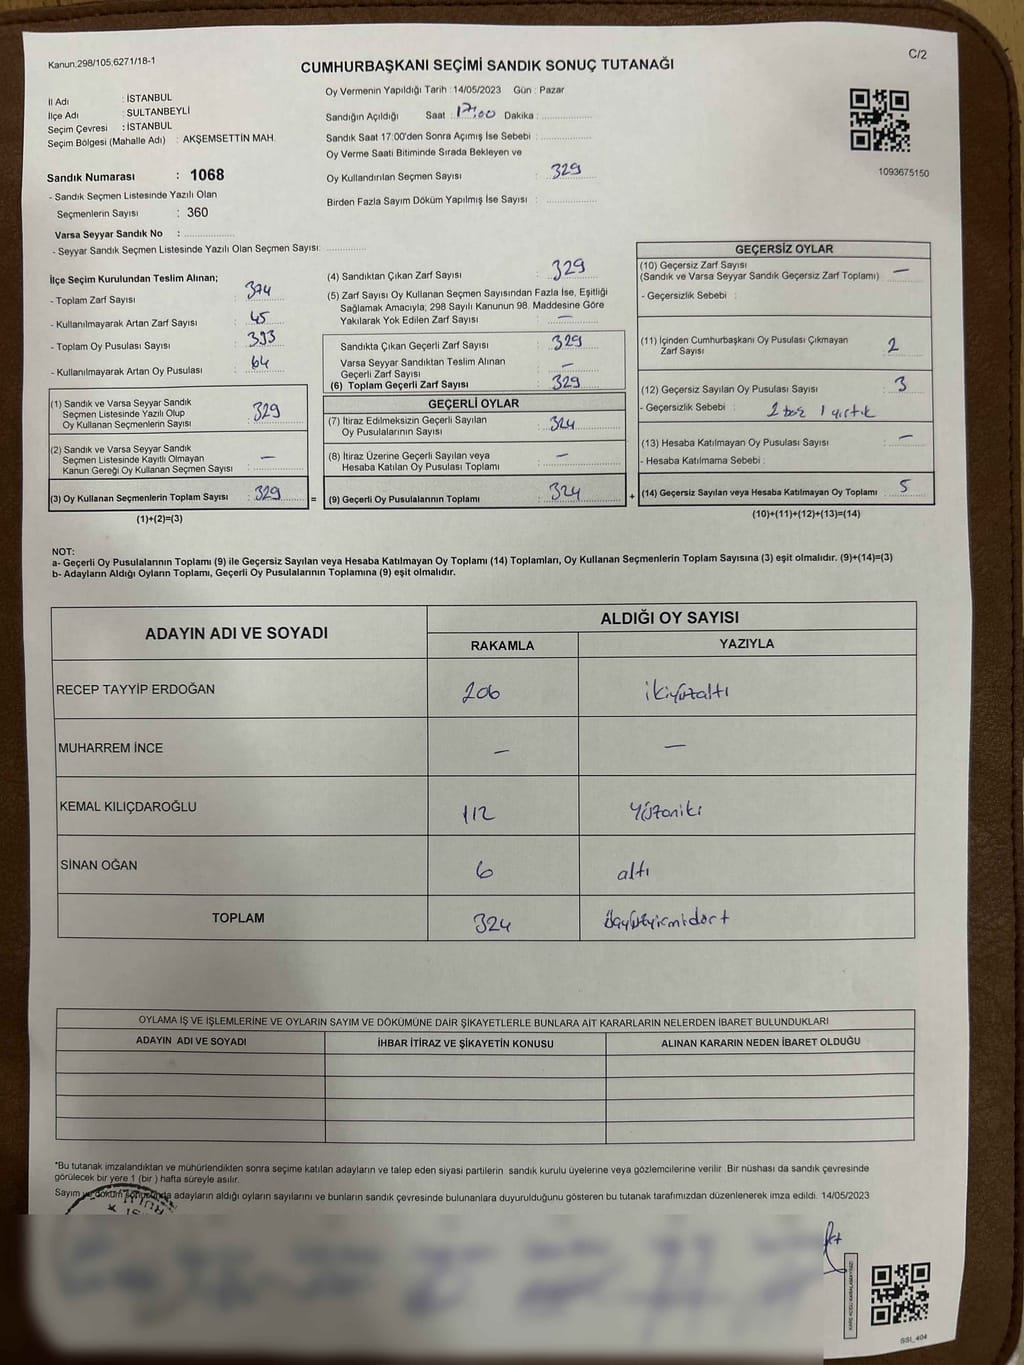 Kanun.298/105,6271/18-1
C/2
CUMHURBAŞKANI SEÇİMİ SANDIK SONUÇ TUTANAĞI
İl Adı : İSTANBUL
İlçe Adı : SULTANBEYLİ
Seçim Çevresi : İSTANBUL
Seçim Bölgesi (Mahalle Adı) : AKŞEMSETTİN MAH.
Sandık Numarası : 1068
- Sandık Seçmen Listesinde Yazılı Olan
Seçmenlerin Sayısı : 360
Varsa Seyyar Sandık No :
- Seyyar Sandık Seçmen Listesinde Yazılı Olan Seçmen Sayısı:
Oy Vermenin Yapıldığı Tarih : 14/05/2023 Gün : Pazar
Sandığın Açıldığı Saat : 17:00 Dakika :
Sandık Saat 17:00'den Sonra Açımış İse Sebebi :
Oy Verme Saati Bitiminde Sırada Bekleyen ve
Oy Kullandırılan Seçmen Sayısı : 329
Birden Fazla Sayım Döküm Yapılmış İse Sayısı :
1093675150
İlçe Seçim Kurulundan Teslim Alınan;
- Toplam Zarf Sayısı : 374
- Kullanılmayarak Artan Zarf Sayısı : 45
- Toplam Oy Pusulası Sayısı : 393
- Kullanılmayarak Artan Oy Pusulası : 64
(1) Sandık ve Varsa Seyyar Sandık
Seçmen Listesinde Yazılı Olup
Oy Kullanan Seçmenlerin Sayısı : 329
(2) Sandık ve Varsa Seyyar Sandık
Seçmen Listesinde Kayıtlı Olmayan
Kanun Gereği Oy Kullanan Seçmen Sayısı : —
(3) Oy Kullanan Seçmenlerin Toplam Sayısı : 329
(1)+(2)=(3)
(4) Sandıktan Çıkan Zarf Sayısı : 329
(5) Zarf Sayısı Oy Kullanan Seçmen Sayısından Fazla İse, Eşitliği
Sağlamak Amacıyla; 298 Sayılı Kanunun 98. Maddesine Göre
Yakılarak Yok Edilen Zarf Sayısı : —
Sandıkta Çıkan Geçerli Zarf Sayısı : 329
Varsa Seyyar Sandıktan Teslim Alınan
Geçerli Zarf Sayısı : —
(6) Toplam Geçerli Zarf Sayısı : 329
GEÇERLİ OYLAR
(7) İtiraz Edilmeksizin Geçerli Sayılan
Oy Pusulalarının Sayısı : 324
(8) İtiraz Üzerine Geçerli Sayılan veya
Hesaba Katılan Oy Pusulası Toplamı : —
= (9) Geçerli Oy Pusulalarının Toplamı : 324
GEÇERSİZ OYLAR
(10) Geçersiz Zarf Sayısı
(Sandık ve Varsa Seyyar Sandık Geçersiz Zarf Toplamı) : —
- Geçersizlik Sebebi :
(11) İçinden Cumhurbaşkanı Oy Pusulası Çıkmayan
Zarf Sayısı 2
(12) Geçersiz Sayılan Oy Pusulası Sayısı : 3
- Geçersizlik Sebebi : 2 boş 1 yırtık
(13) Hesaba Katılmayan Oy Pusulası Sayısı : —
- Hesaba Katılmama Sebebi :
+ (14) Geçersiz Sayılan veya Hesaba Katılmayan Oy Toplamı : 5
(10)+(11)+(12)+(13)=(14)
NOT:
a- Geçerli Oy Pusulalarının Toplamı (9) ile Geçersiz Sayılan veya Hesaba Katılmayan Oy Toplamı (14) Toplamları, Oy Kullanan Seçmenlerin Toplam Sayısına (3) eşit olmalıdır. (9)+(14)=(3)
b- Adayların Aldığı Oyların Toplamı, Geçerli Oy Pusulalarının Toplamına (9) eşit olmalıdır.
ADAYIN ADI VE SOYADI
ALDIĞI OY SAYISI
RAKAMLA YAZIYLA
RECEP TAYYİP ERDOĞAN 206 ikiyüzaltı
MUHARREM İNCE — —
KEMAL KILIÇDAROĞLU 112 Yüzoniki
SİNAN OĞAN 6 altı
TOPLAM 324 üçyüzyirmidört
OYLAMA İŞ VE İŞLEMLERİNE VE OYLARIN SAYIM VE DÖKÜMÜNE DAİR ŞİKAYETLERLE BUNLARA AİT KARARLARIN NELERDEN İBARET BULUNDUKLARI
ADAYIN ADI VE SOYADI İHBAR İTİRAZ VE ŞİKAYETİN KONUSU ALINAN KARARIN NEDEN İBARET OLDUĞU
*Bu tutanak imzalandıktan ve mühürlendikten sonra seçime katılan adayların ve talep eden siyasi partilerin sandık kurulu üyelerine veya gözlemcilerine verilir. Bir nüshası da sandık çevresinde
görülecek bir yere 1 (bir ) hafta süreyle asılır.
Sayım ve döküm sonucunda adayların aldığı oyların sayılarını ve bunların sandık çevresinde bulunanlara duyurulduğunu gösteren bu tutanak tarafımızdan düzenlenerek imza edildi. 14/05/2023
SSI_404